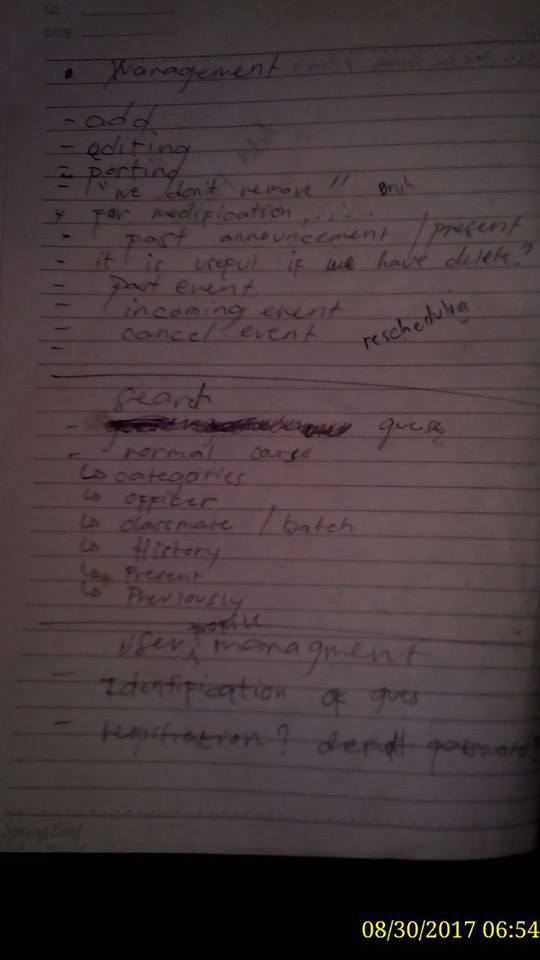 NO.
DATE
• Management
- add
- editing
- porting
- "we don't remove" Bruh
* for medification .....
- past announcement / present
- it is useful if we have delete?
- Part event
- incoming event
- cancel event
rescheduling
-
search
- ques
- normal
↳ categories
↳ officer
↳ classmate / batch
↳ History
↳ Present
↳ Previously
user profile managment
- Identification of ques
- registration? default password?
Spring Leaf
08/30/2017 06:54